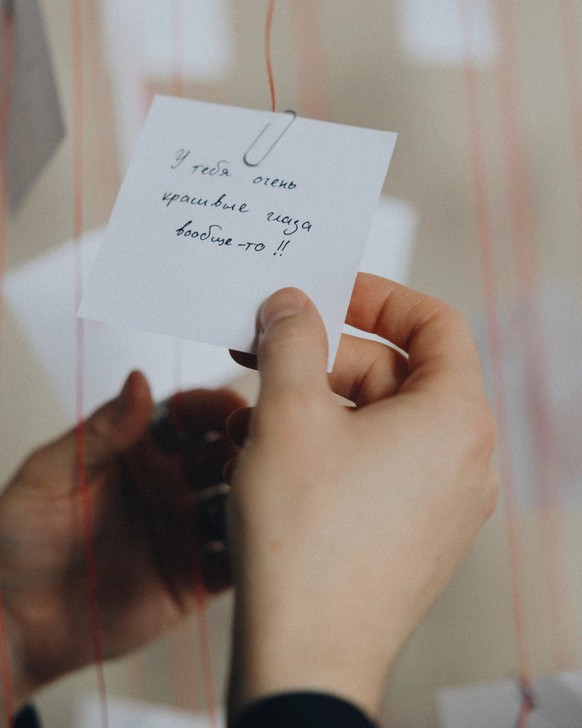 У тебя очень
красивые глаза
вообще-то !!